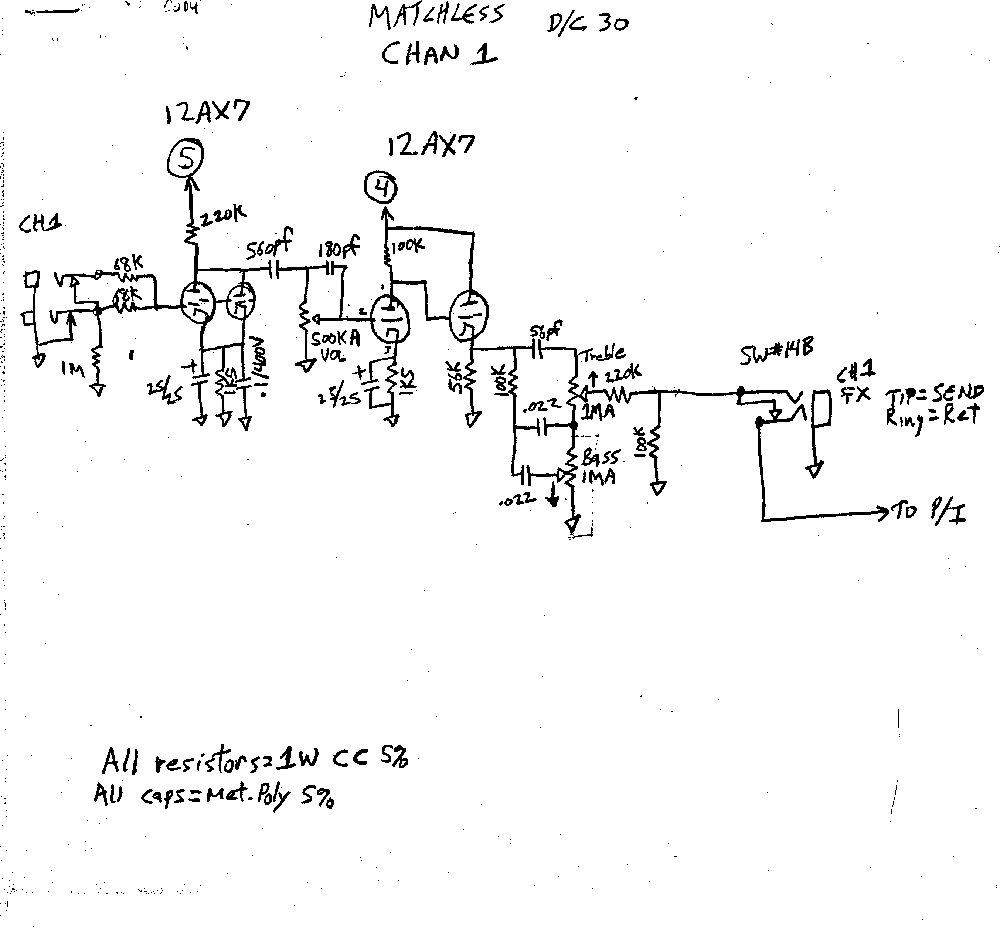 MATCHLESS D/C 30
CHAN 1
12AX7
5
12AX7
4
CH1
220K
560pf
180pf
100K
68K
68K
1
2
3
500KA
VOL
1M
25/25
1K5
.1/400V
25/25
1K5
56K
100K
56pf
Treble
220K
1MA
.022
Bass
1MA
.022
100K
SW#14B
CH1
FX
TIP=SEND
Ring=Ret
TO P/I
All resistors=1W CC 5%
All caps=Met.Poly 5%